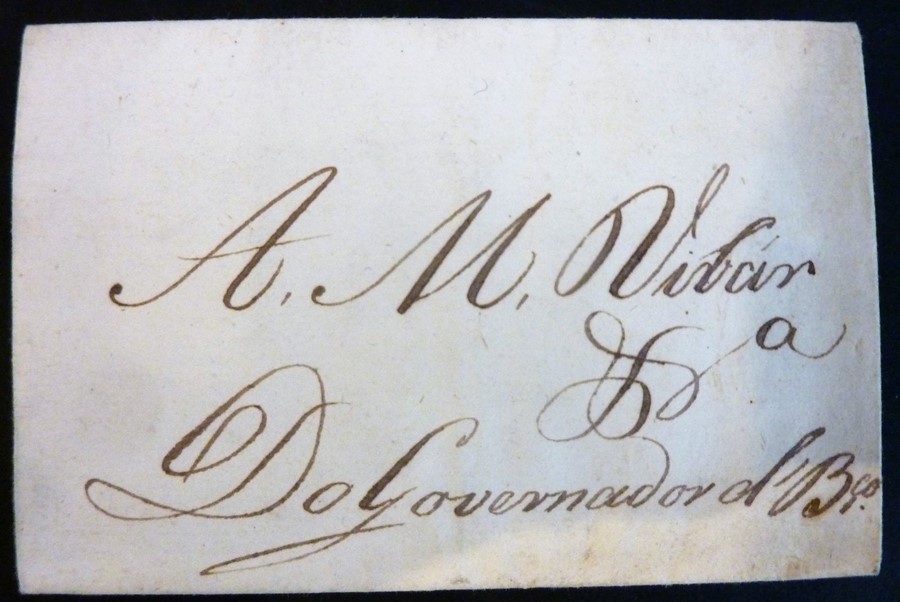 A. M. Vibár
&ª
Do Governador d'B.ço